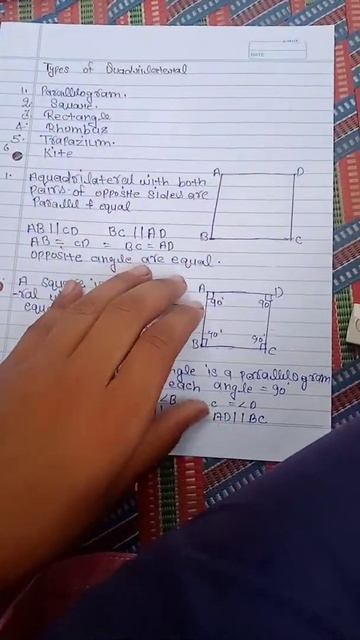 DATE
Types of Quadrilateral
1. Parallelogram.
2. Square.
3. Rectangle
4. Rhombas
5. Trapazium.
6 Kite
1. Aquadrilateral with both
pairs of opposite sides are
Parallel & equal
A D
B C
AB||CD BC||AD
AB = CD = BC = AD
opposite angle are equal.
A Square is
-ral
equ
A D
90° 90°
90° 90°
B C
ngle is a parallelogram
each angle = 90°
∠B C = ∠D
AD||BC